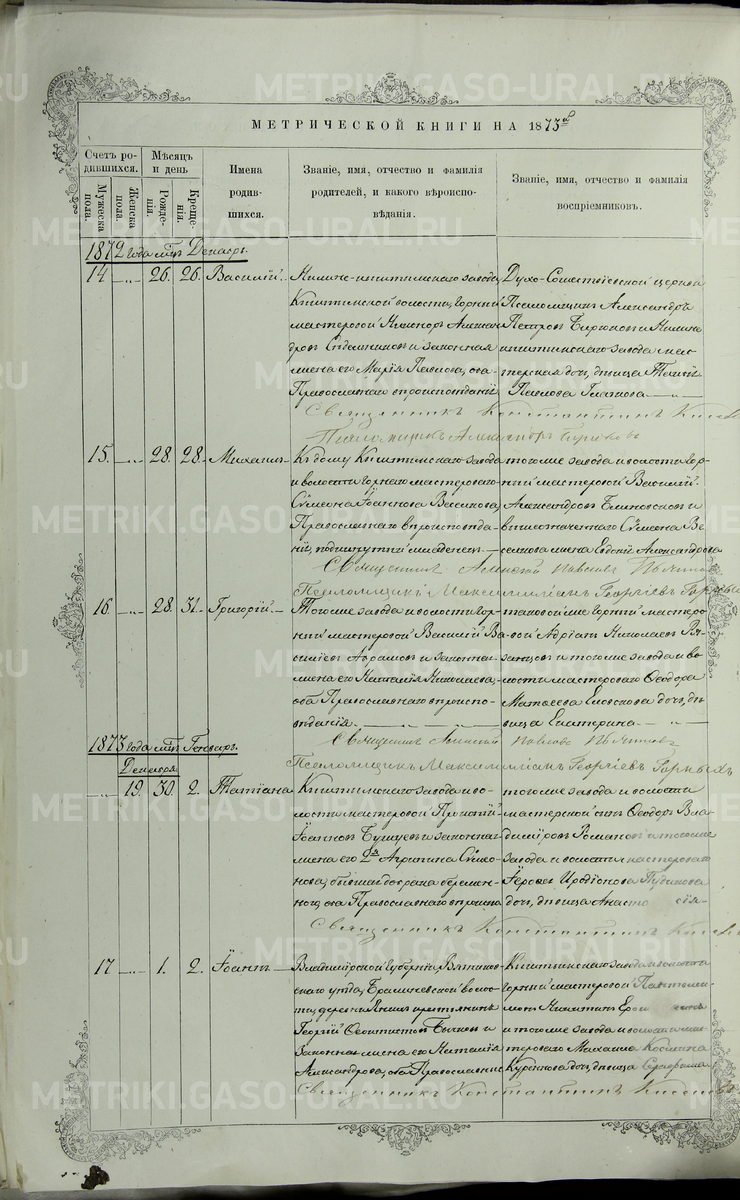 МЕТРИЧЕСКОЙ КНИГИ НА 1873й
Счетъ родившихся.
Мужеска пола.
Женска пола.
Мѣсяцъ и день
Рожденія.
Крещенія.
Имена родившихся.
Званіе, имя, отчество и фамилія родителей, и какого вѣроисповѣданія.
Званіе, имя, отчество и фамилія воспріемниковъ.
1872 года мцъ Декабрь.
14 26. 26. Василій.
Нижне-Кыштымскаго завода,
Кыштымской волости, горный
мастеровой Никаноръ Алексан
дровъ и законная
жена его Марія Павлова, оба
Православнаго вѣроисповѣданія.
Духо-Сошествіевской церкви
Псаломщикъ Александръ
Петровъ Бирюковъ и Нижне
кыштымскаго завода мас
терская дочь, дѣвица
Павлова
Священникъ Константинъ
Псаломщикъ Александръ Бирюковъ
15. 28. 28. Михаилъ
Къ дому Кыштымскаго завода
и волости горнаго мастероваго
Сѵмеона Іоаннова Веселкова,
Православнаго вѣроисповѣда
нія, подкинутый младенецъ.
того же завода и волости гор
ный мастеровой Василій
Александровъ и
вышеозначеннаго Сѵмеона Ве
селкова жена Евдокія Александрова
Священникъ Алексѣй Павловъ
Псаломщикъ Максимиліанъ Георгіевъ Горныхъ
16 28. 31. Григорій.
Того же завода и волости гор
ный мастеровой Василій Ва
сильевъ Абрамовъ и законная
жена его Наталія Николаева,
оба Православнаго вѣроиспо
вѣданія.
таковой же горный мастеро
вой Адріанъ Николаевъ Ря
занцовъ и того же завода и во
лости мастероваго Ѳеодора
Матѳеева дочь, дѣ
вица Екатерина
Священникъ Алексѣй Павловъ
Псаломщикъ Максимиліанъ Георгіевъ Горныхъ
1873 года мцъ Генварь.
Декабря
19. 30. 2. Татіана
Кыштымскаго завода и во
лости мастеровой
Іоанновъ и законная
жена его 2я Агрипина Сѵмео
нова, бывшая до брака беремен
ною, оба Православнаго вѣроиспо
того же завода и волости
мастерской сынъ Ѳеодоръ Вла
диміровъ Романовъ и того же
завода и волости мастероваго
Іероѳея Иродіонова
дочь, дѣвица Анастасія
Священникъ Константинъ
17 1. 2. Іоаннъ
Владимірской Губерніи, Вязников
скаго уѣзда, волос
ти, деревни крестьянинъ
Георгій Ѳеоктистовъ и
законная жена его Наталія
Александрова, оба Православные
Кыштымскаго завода и волости
горный мастеровой Пантелеи
монъ Никитинъ
и того же завода и волости мас
тероваго Михаила Косьмина
дочь, дѣвица Серафима
Священникъ Константинъ
METRIKI.GASO-URAL.RU